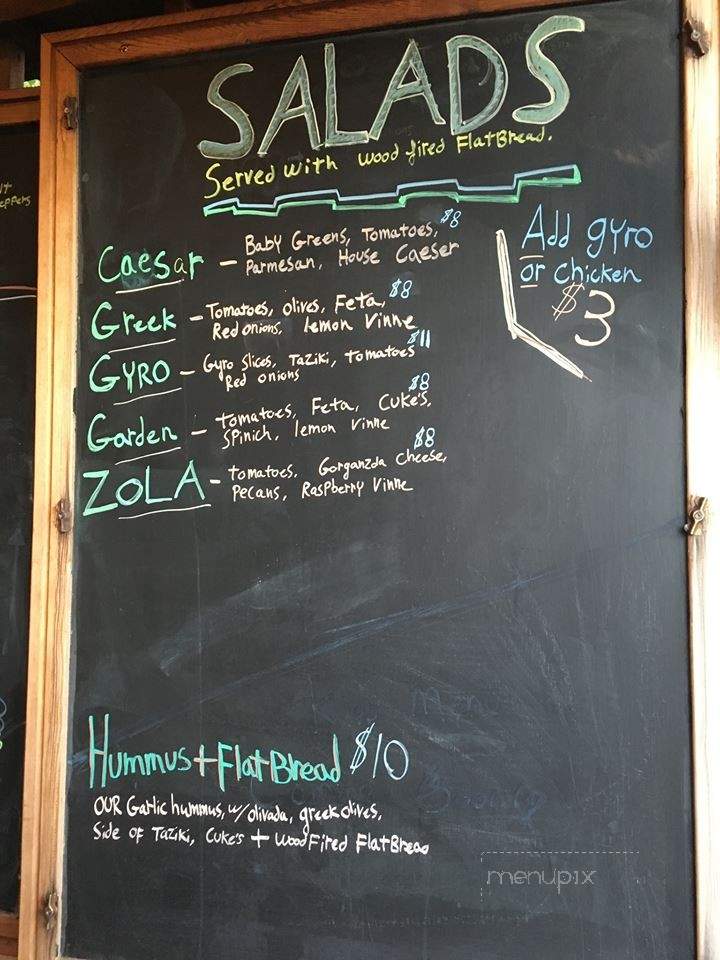 SALADS
Served with wood fired FlatBread.
Caesar - Baby Greens, Tomatoes, $8
Parmesan, House Caeser
Greek - Tomatoes, olives, Feta, $8
Red onions, lemon vinne
GYRO - Gyro Slices, Taziki, tomatoes $11
Red onions
Garden - tomatoes, Feta, Cuke's, $8
Spinich, lemon vinne
ZOLA - tomatoes, Gorganzda cheese, $8
Pecans, Raspberry Vinne
Add gyro
or chicken
$3
Hummus + FlatBread $10
OUR Garlic hummus, w/ olivada, greek olives,
Side of Taziki, Cuke's + WoodFired FlatBread
menupix